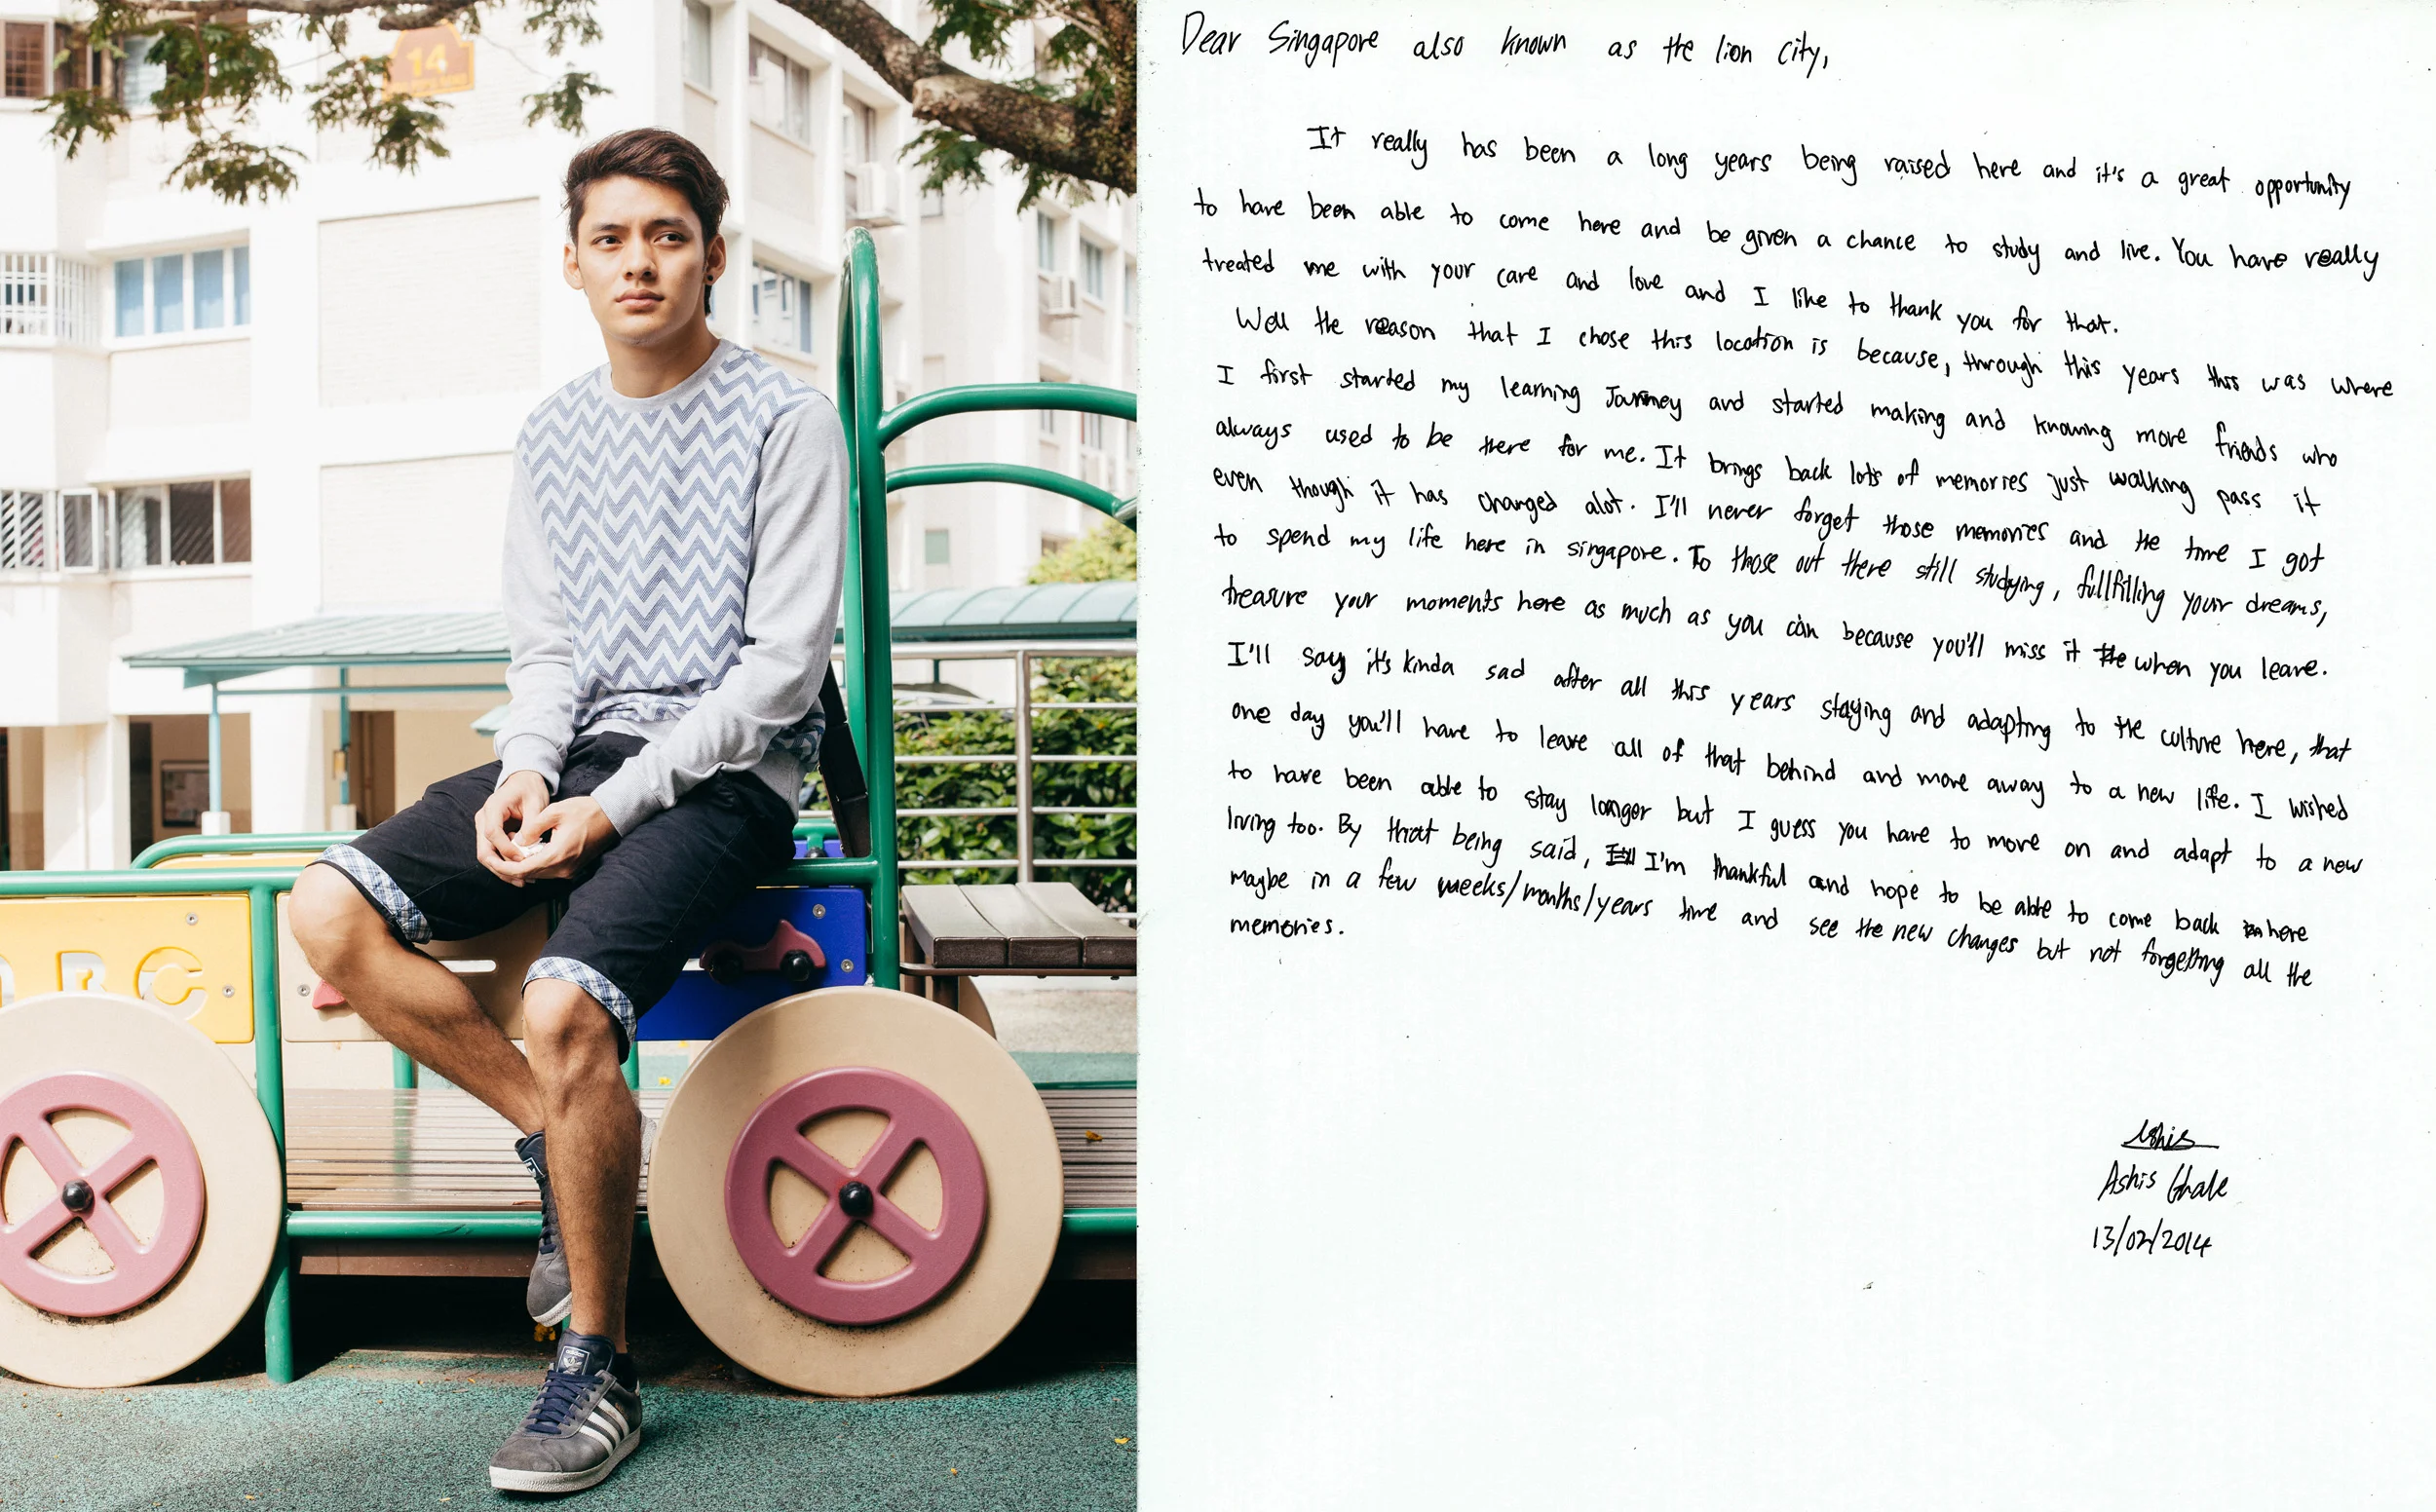 14
ABC
Dear Singapore also known as the lion city,
It really has been a long years being raised here and it's a great opportunity
to have been able to come here and be given a chance to study and live. You have really
treated me with your care and love and I like to thank you for that.
Well the reason that I chose this location is because, through this years this was where
I first started my learning Journey and started making and knowing more friends who
always used to be there for me. It brings back lots of memories just walking pass it
even though it has changed alot. I'll never forget those memories and the time I got
to spend my life here in singapore. To those out there still studying, fullfilling your dreams,
treasure your moments here as much as you can because you'll miss it when you leave.
I'll say it's kinda sad after all this years staying and adapting to the culture here, that
one day you'll have to leave all of that behind and move away to a new life. I wished
to have been able to stay longer but I guess you have to move on and adapt to a new
living too. By that being said, I'm thankful and hope to be able to come back here
maybe in a few weeks/months/years time and see the new changes but not forgetting all the
memories.
Ashis
Ashis Ghale
13/02/2014